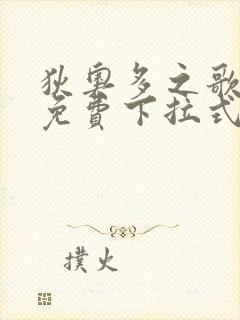 狄奧多之歌
免費下拉式
撲火